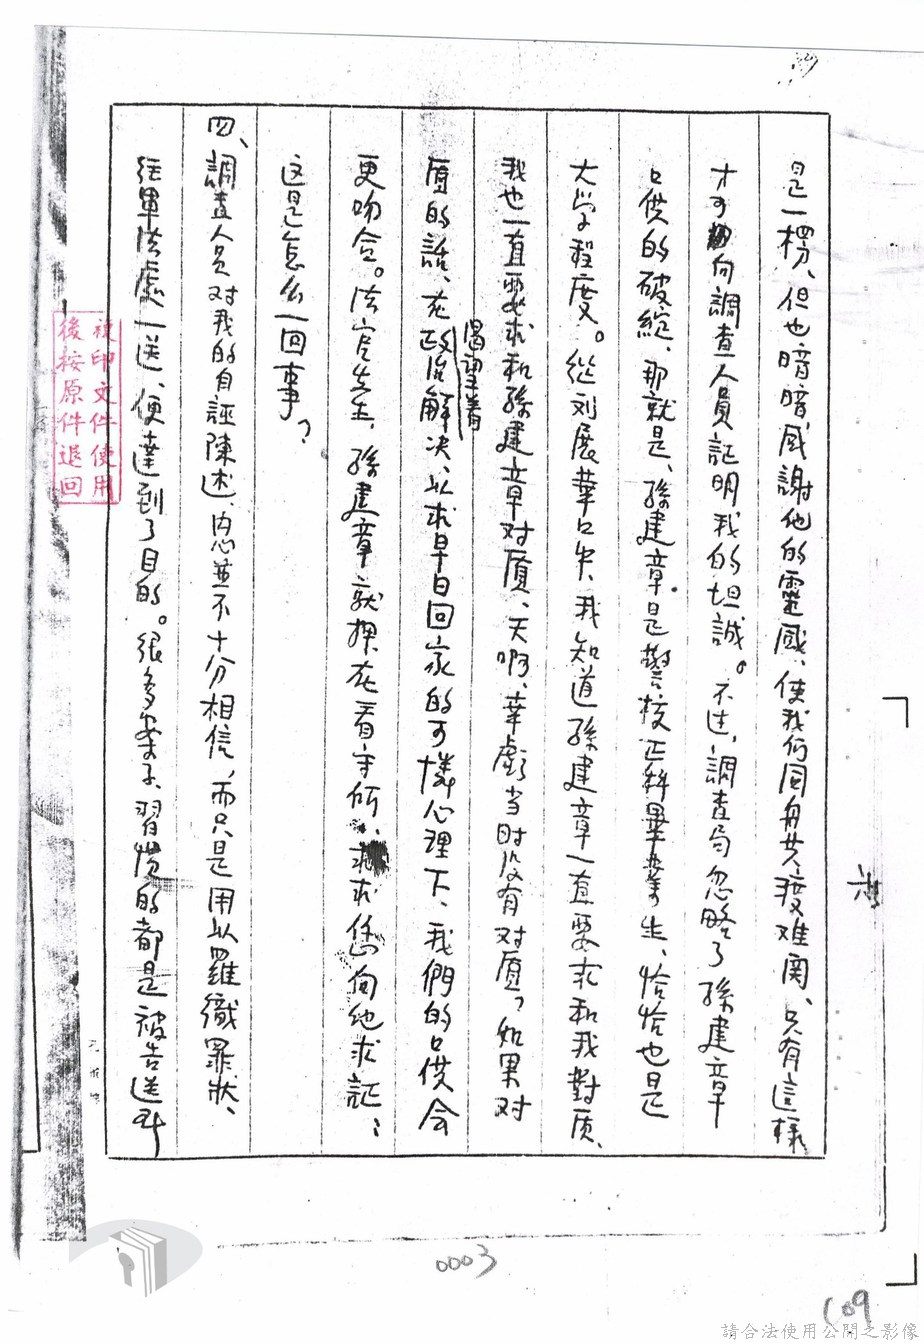 是一楞、但也暗暗感謝他的靈感、使我们同舟共渡难関、只有這樣
才可向調查人員証明我的坦誠。不过,調查局忽略了孫建章
口供的破綻、那就是、孫建章是警校正科畢業生、恰恰也是
大学程度。從刘展華口中、我知道孫建章一直要求和我對质、
我也一直要求和孫建章对质、天啊、幸虧当时没有对质,如果对
质的話、在政治解决、以求早日回家的可憐心理下、我們的口供会
渴望着
更吻合。法官先生,孫建章就押在看守所、求求您向他求証;
这是怎么一回事?
四、調查人員对我的自誣陳述、内心並不十分相信,而只是用以羅織罪狀、
往軍法處一送、便達到了目的。很多案子、習慣的都是被告送到
複印文件使用
後按原件退回
0003
109
請合法使用公開之影像